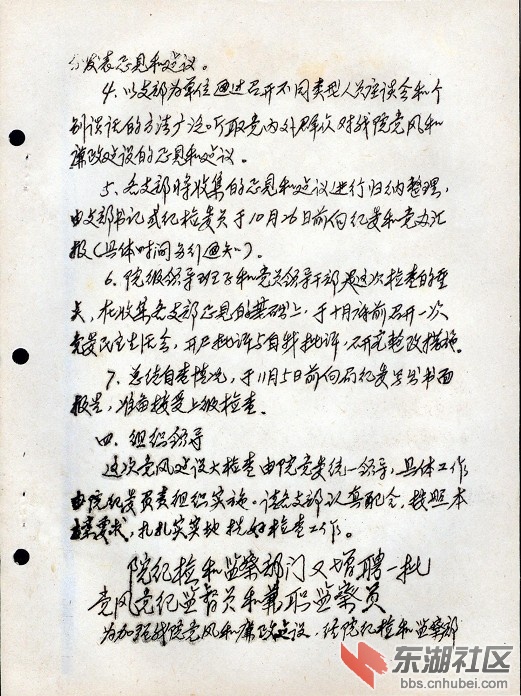 发表意见和建议。
4、以支部为单位通过召开不同类型人员座谈会和个
别谈话的方法广泛听取党内外群众对我院党风和
廉政建设的意见和建议。
5、各支部将收集的意见和建议进行归纳整理，
由支部书记或纪检委员于10月26日前向纪委和党办汇
报（具体时间另行通知）。
6、院级领导班子和党员领导干部是这次检查的重
点，在收集各支部意见的基础上，于十月底前召开一次
党员民主生活会，开展批评与自我批评，研究整改措施。
7、总结自查情况，于11月5日前向局纪委写出书面
报告，准备接受上级检查。
四、组织领导
这次党风建设大检查由院党委统一领导，具体工作
由院纪委负责组织实施。请各支部认真配合，按照本
要求，扎扎实实地搞好检查工作。
院纪检和监察部门又增聘一批
党风党纪监督员和兼职监察员
为加强我院党风和廉政建设，院纪检和监察部
东湖社区
bbs.cnhubei.com